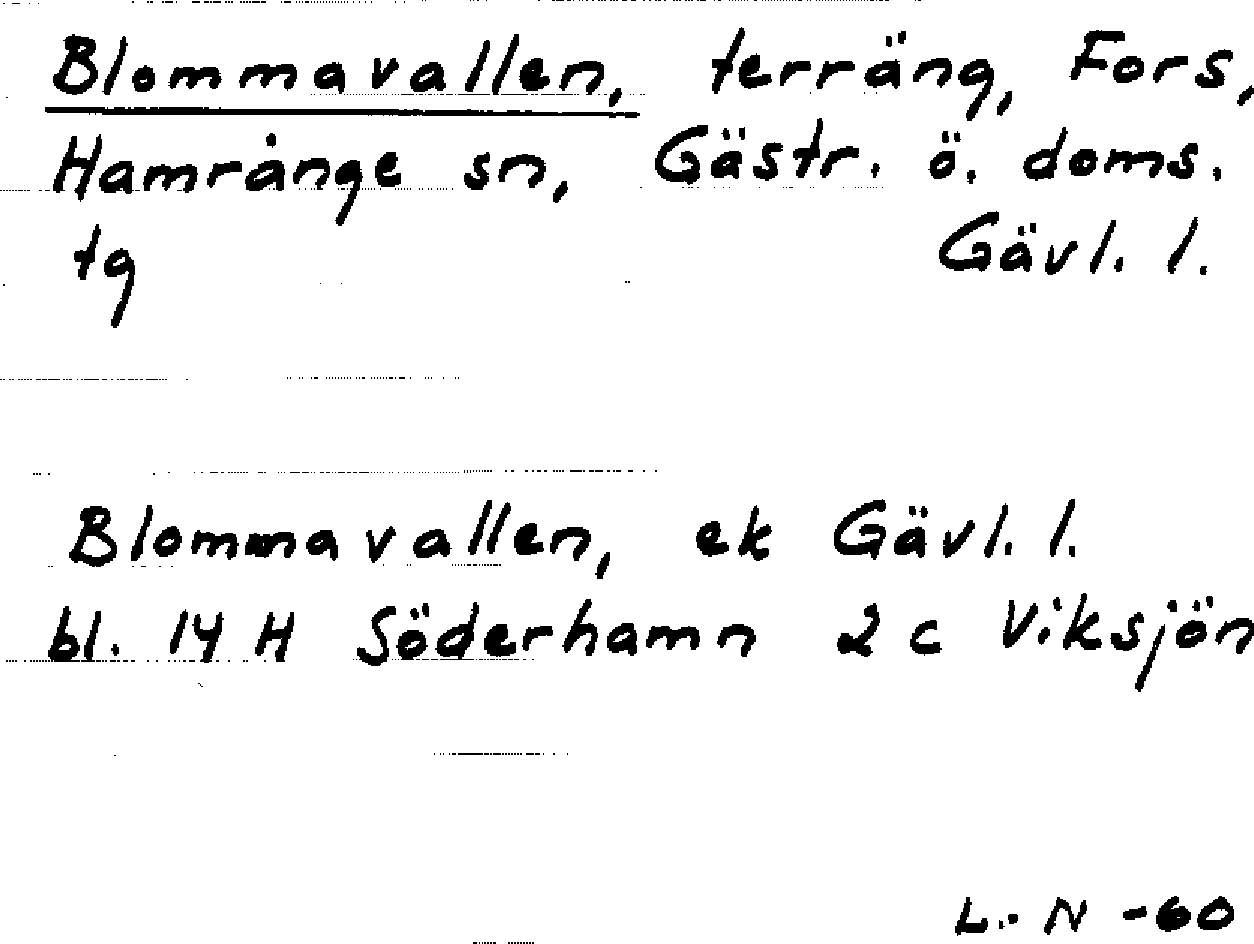 Blommavallen, terräng, Fors,
Hamrånge sn, Gästr. ö. doms.
tg Gävl. l.
Blommavallen, ek Gävl. l.
bl. 14 H Söderhamn 2 c Viksjön
L. N -60